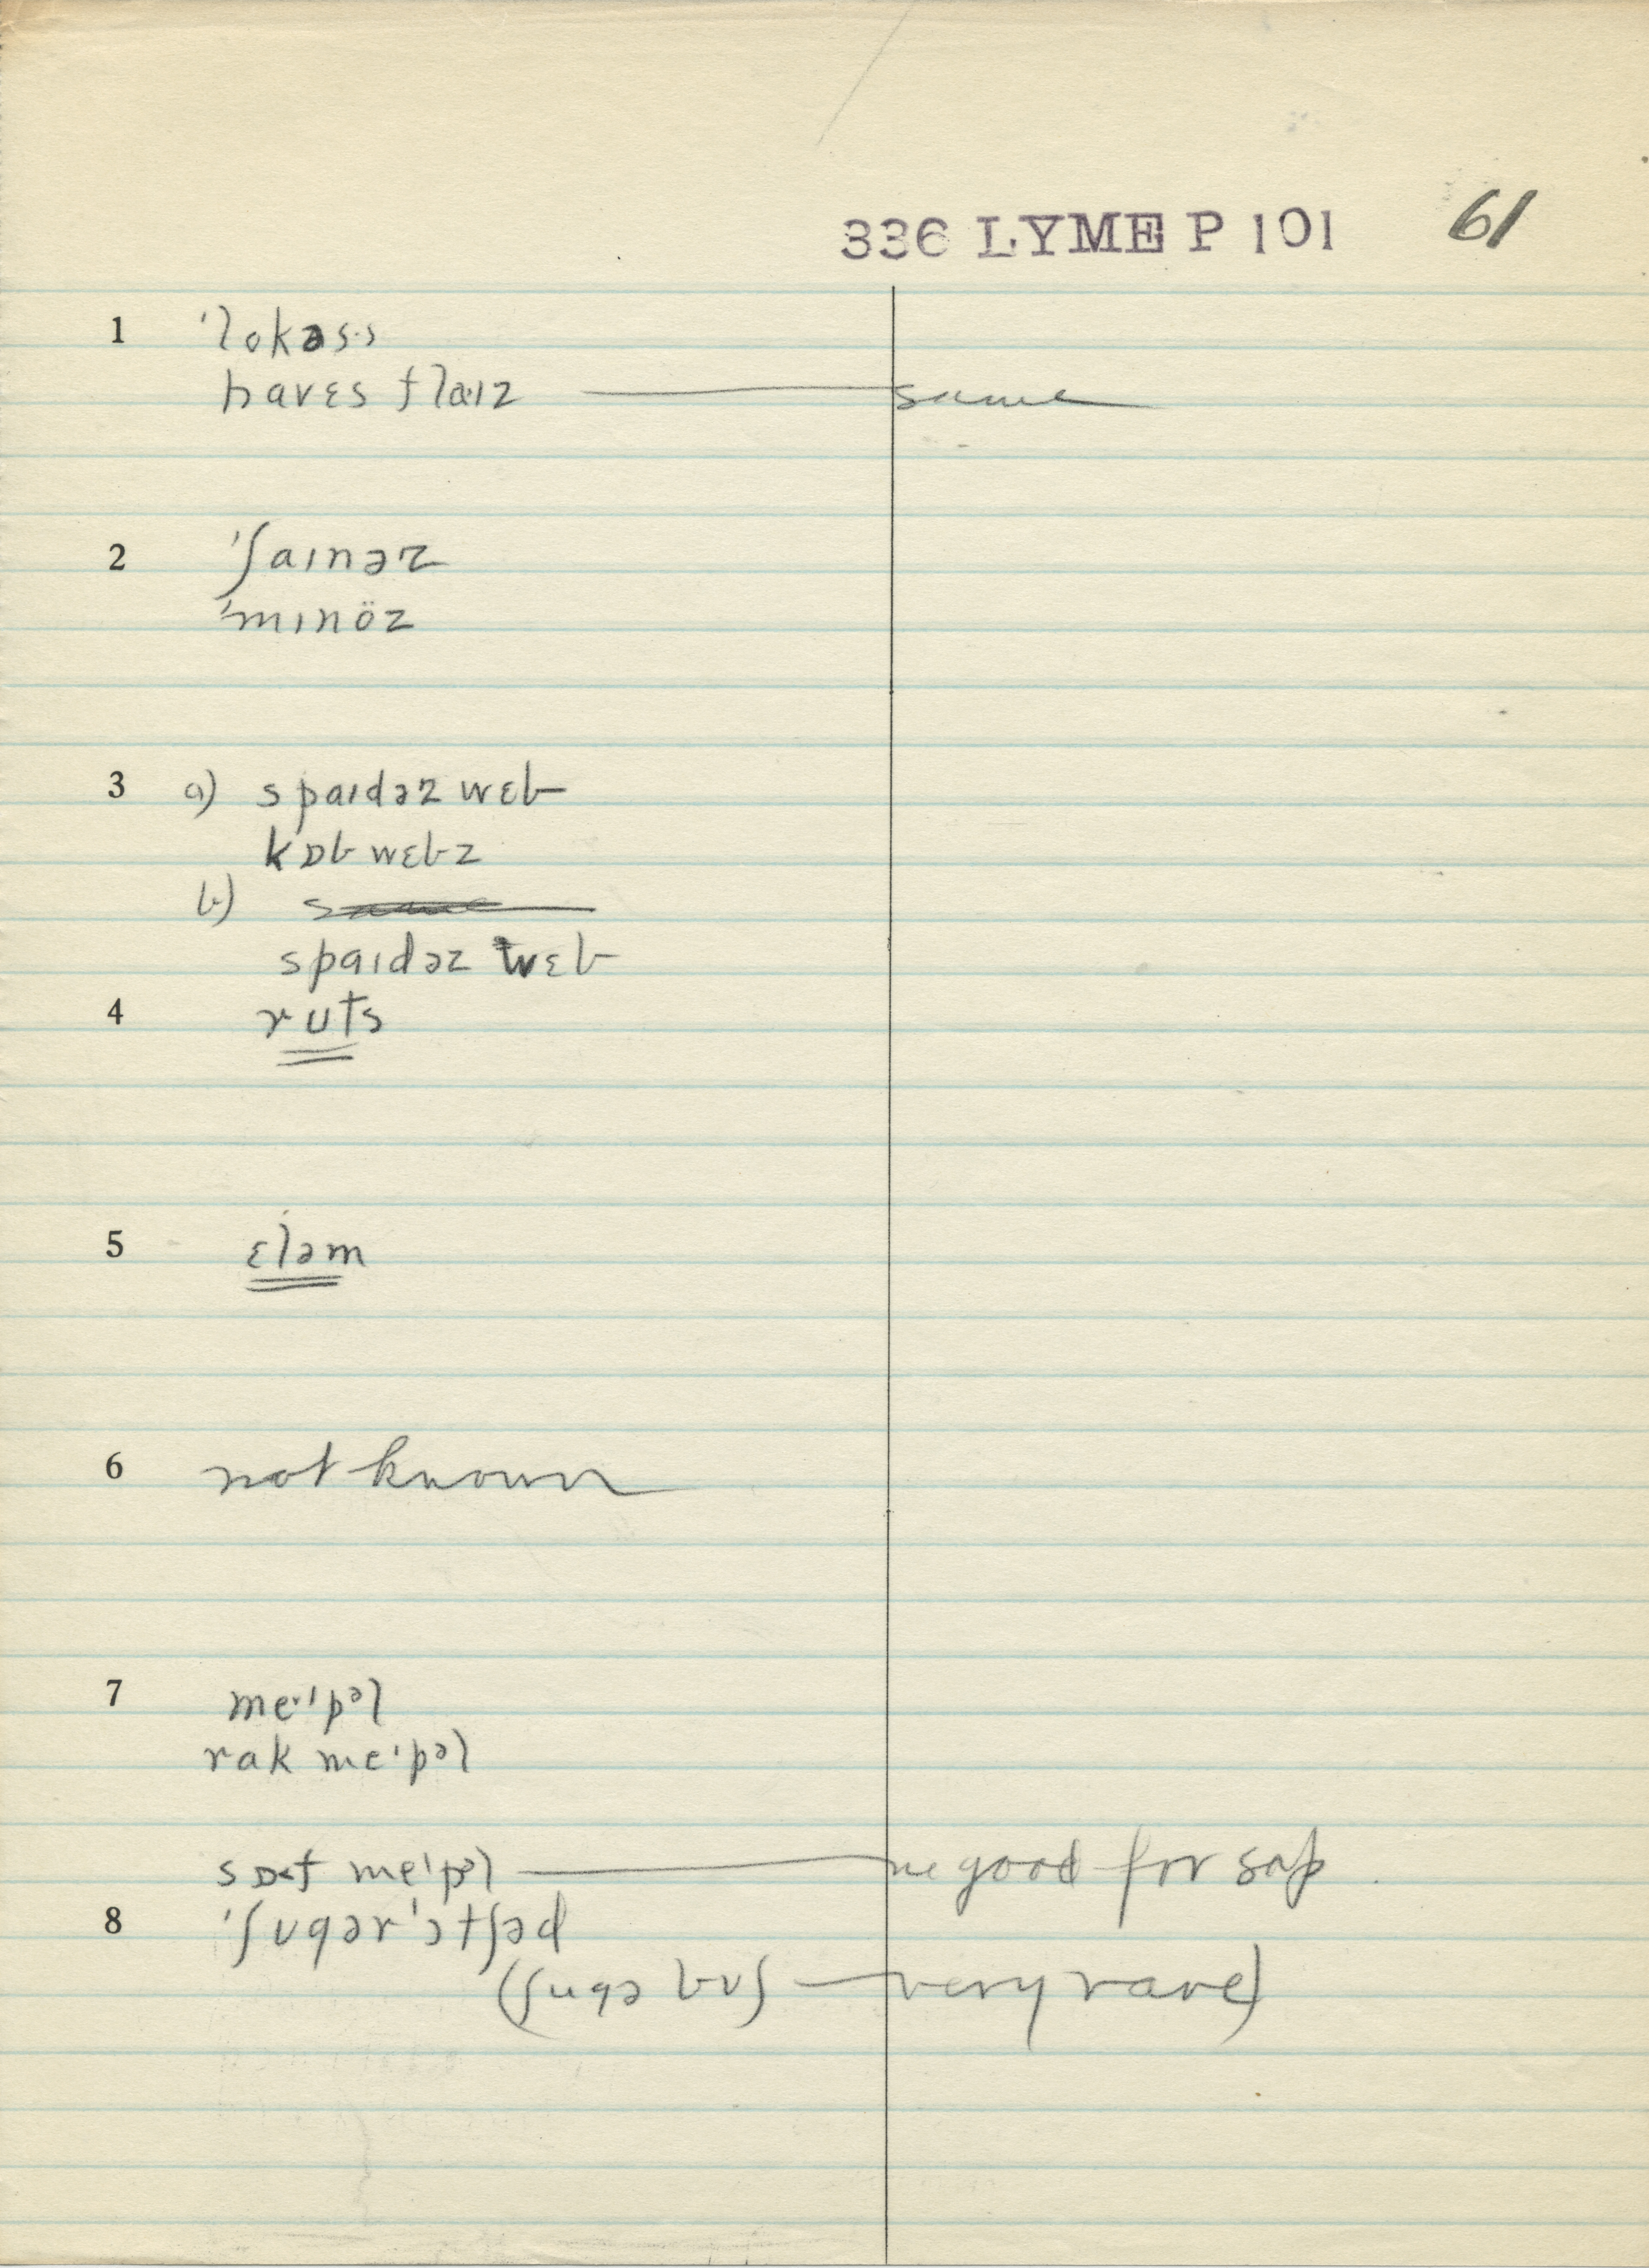 336 LYME P 101 61
1 ˈlokəs·s
havɛs flaˑɪz — same
2 ˈʃaɪnəz
ˈmɪnöz
3 a) spaɪdəz wɛb
kɒb wɛbz
b)
spaɪdəz wɛb
4 ruts
5 ɛləm
6 not known
7 meˑɪpᵊl
rak meˑɪpᵊl
sɒ<f meˈpᵊl — good for sap.
8 ˈʃugərˈɔtʃəd
(ʃugə buʃ — very rare)